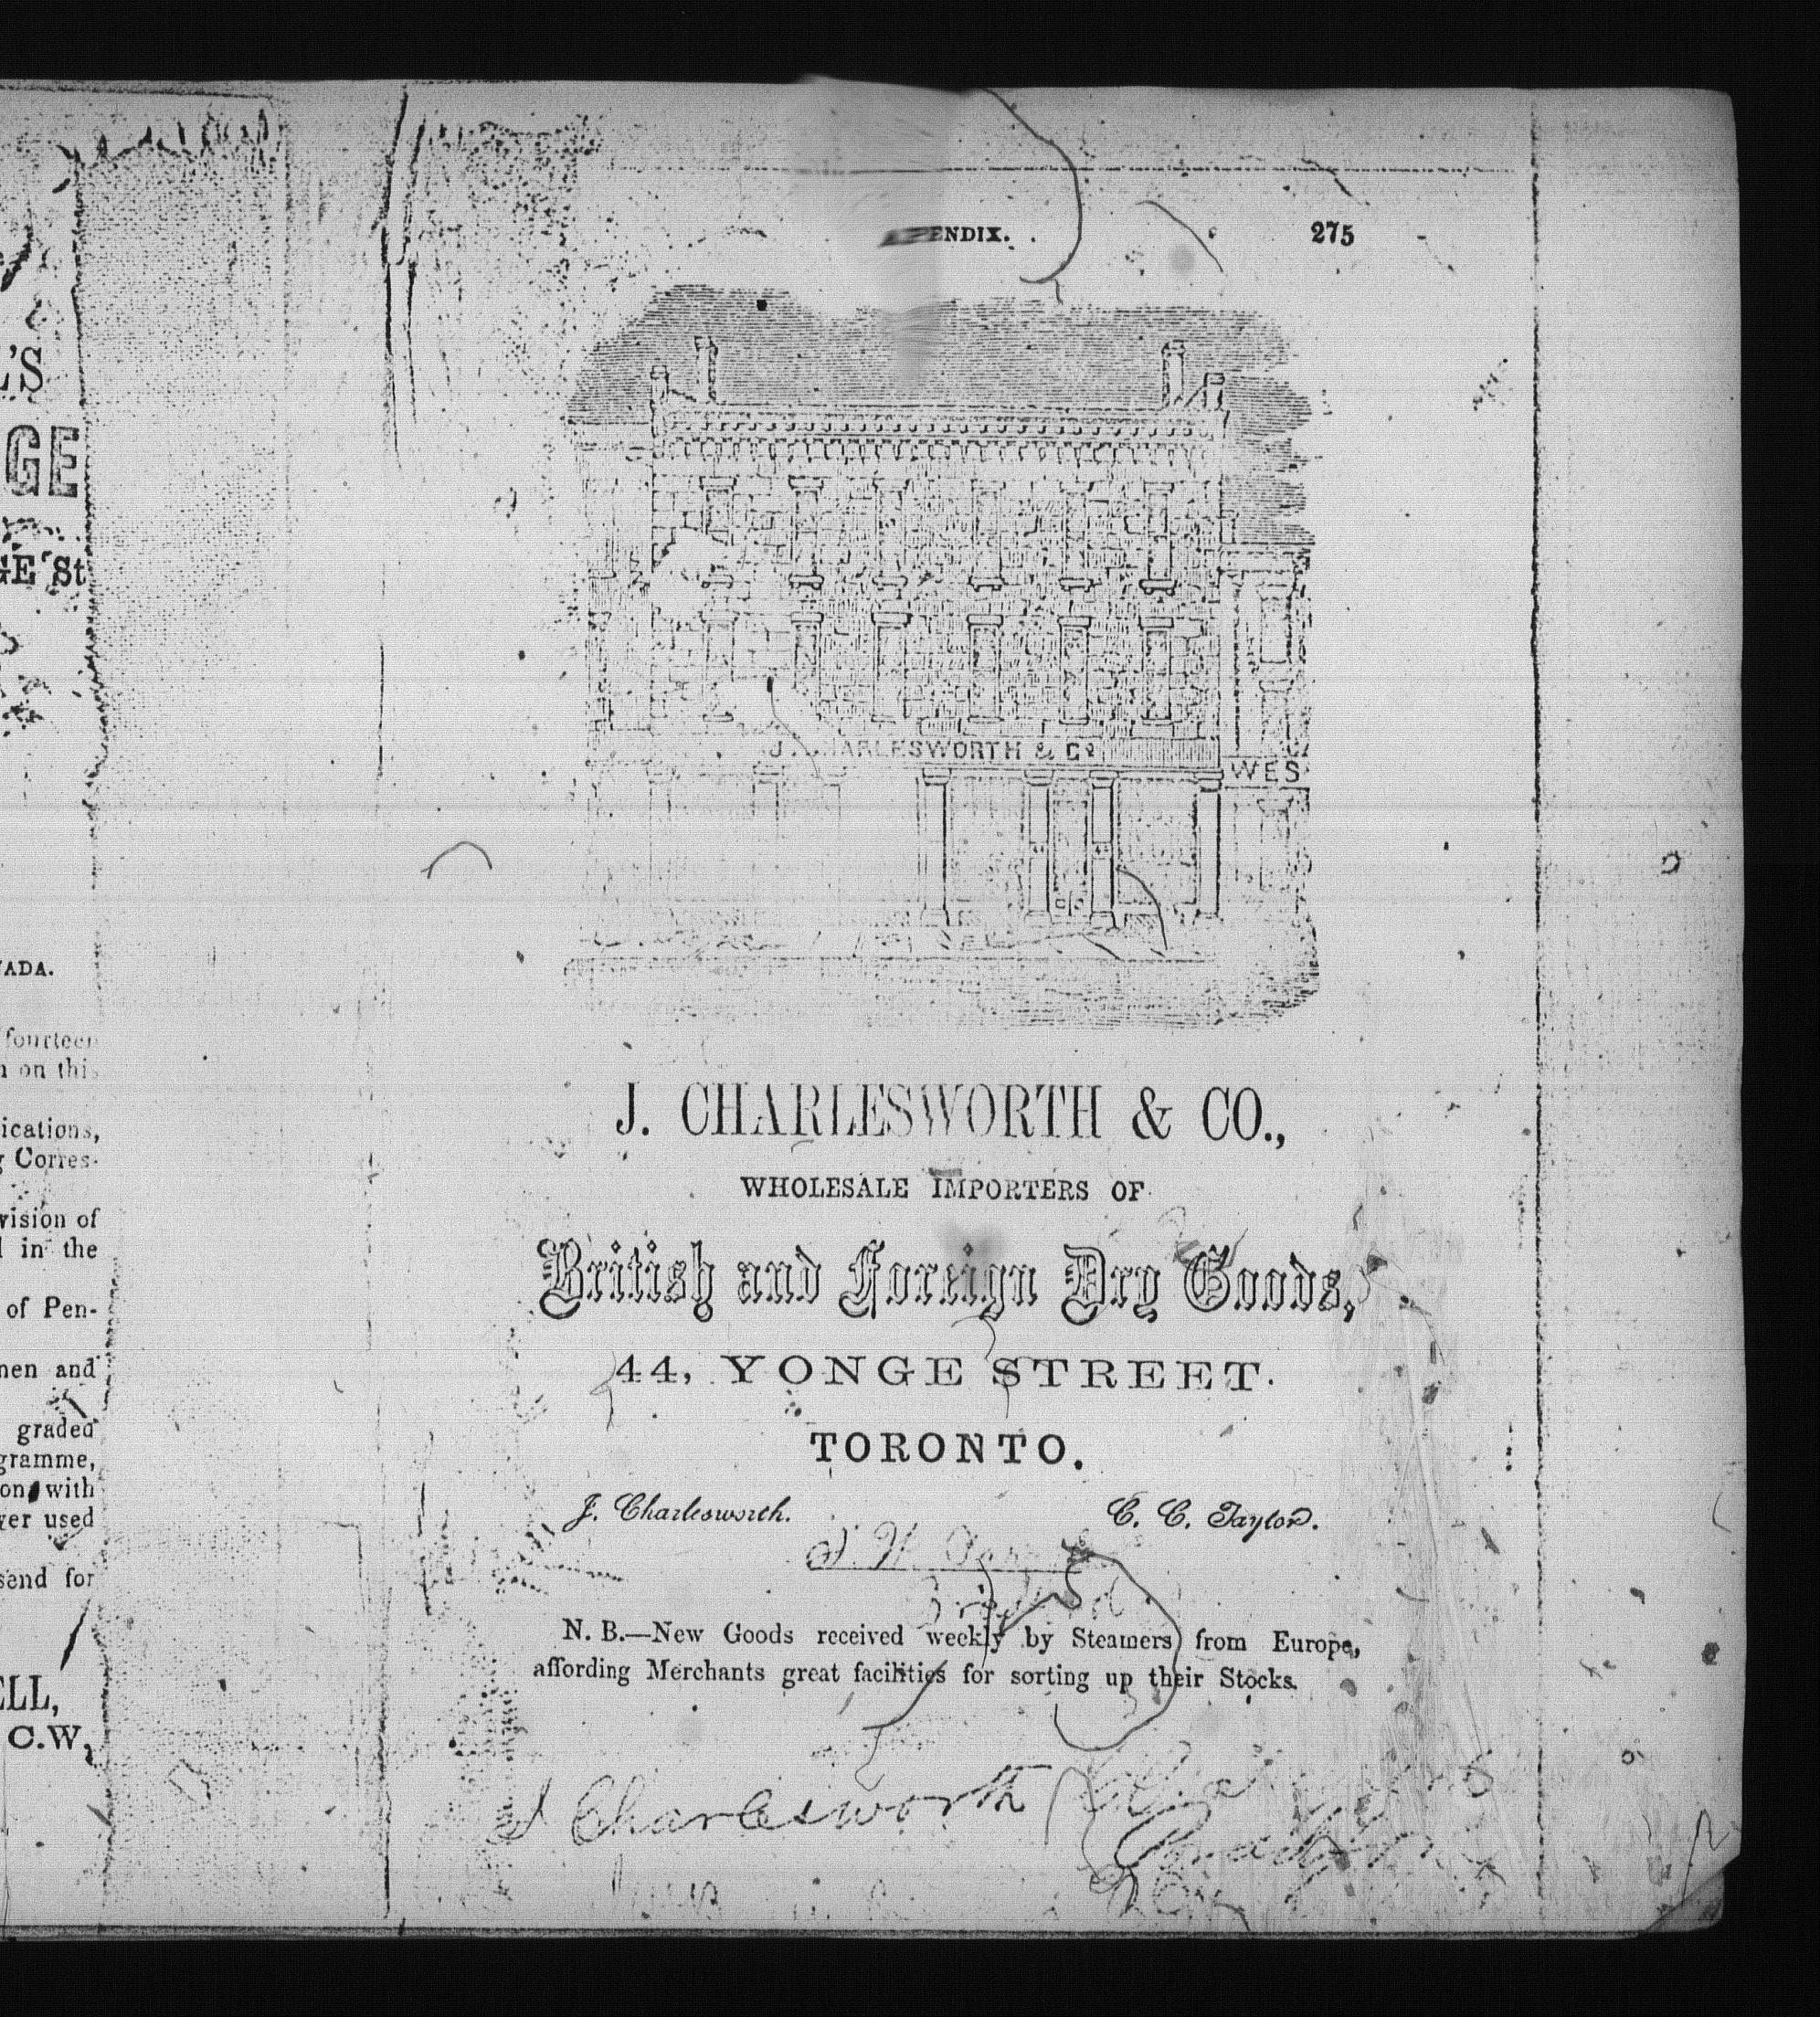 'S
GE
GE St
ADA.
fourteen
on this
ications,
Corres-
vision of
in the
of Pen-
men and
graded
gramme,
with
ver used
send for
ELL,
C.W,
ENDIX. 275
J. CHARLESWORTH & Co
WES
J. CHARLESWORTH & CO.,
WHOLESALE IMPORTERS OF
British and Foreign Dry Goods,
44, YONGE STREET.
TORONTO.
J. Charlesworth. C. C. Taylor.
N. B.—New Goods received weekly by Steamers from Europe,
affording Merchants great facilities for sorting up their Stocks.
J Charlesworth